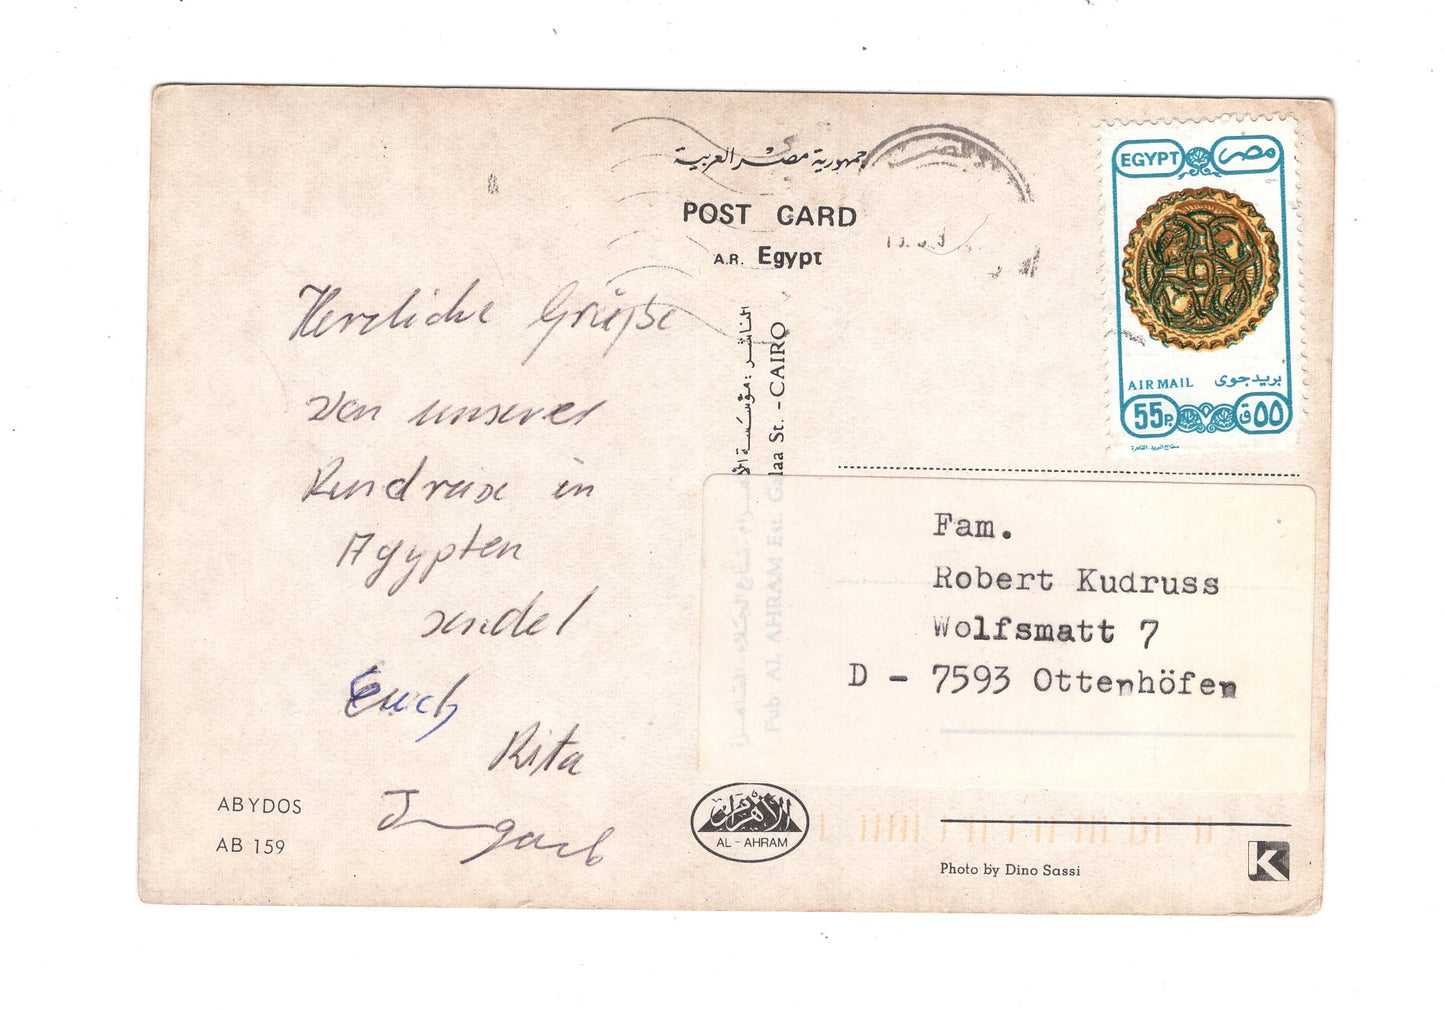 Herzliche Grüße
von unserer
Rundreise in
Ägypten
sendet
Euch
Rita
Irmgard
ABYDOS
AB 159
جمهورية مصر العربية
POST CARD
A.R. Egypt
الناشر : مؤسسة الأهرام شارع الجلاء القاهرة
Pub AL AHRAM Est. Galaa St. - CAIRO
AL - AHRAM
الأهرام
EGYPT مصر
AIR MAIL بريد جوى
55P. ٥٥ق
Fam.
Robert Kudruss
Wolfsmatt 7
D - 7593 Ottenhöfen
Photo by Dino Sassi
K